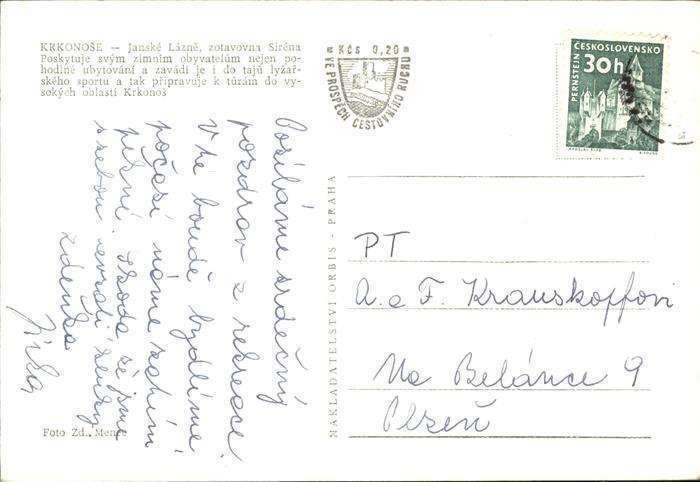 KRKONOŠE — Janské Lázně, zotavovna Siréna
Poskytuje svým zimním obyvatelům nejen po-
hodlné ubytování a zavádí je i do tajů lyžař-
ského sportu a tak připravuje k túrám do vy-
sokých oblastí Krkonoš
Kčs 0,20
VE PROSPĚCH CESTOVNÍHO RUCHU
ČESKOSLOVENSKO
30h
PERNŠTEJN
Posíláme srdečný
pozdrav z rekreace.
V té boudě bydlíme
počasí máme zatím
pěkné. Škoda že jsme
s sebou nevzali
Zdenka
Jirka
NAKLADATELSTVÍ ORBIS - PRAHA
PT
A. a F. Krauskopfovi
Na Belánce 9
Plzeň
Foto Zd.